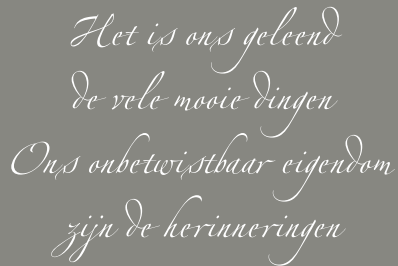 Het is ons geleend
de vele mooie dingen
Ons onbetwistbaar eigendom
zijn de herinneringen